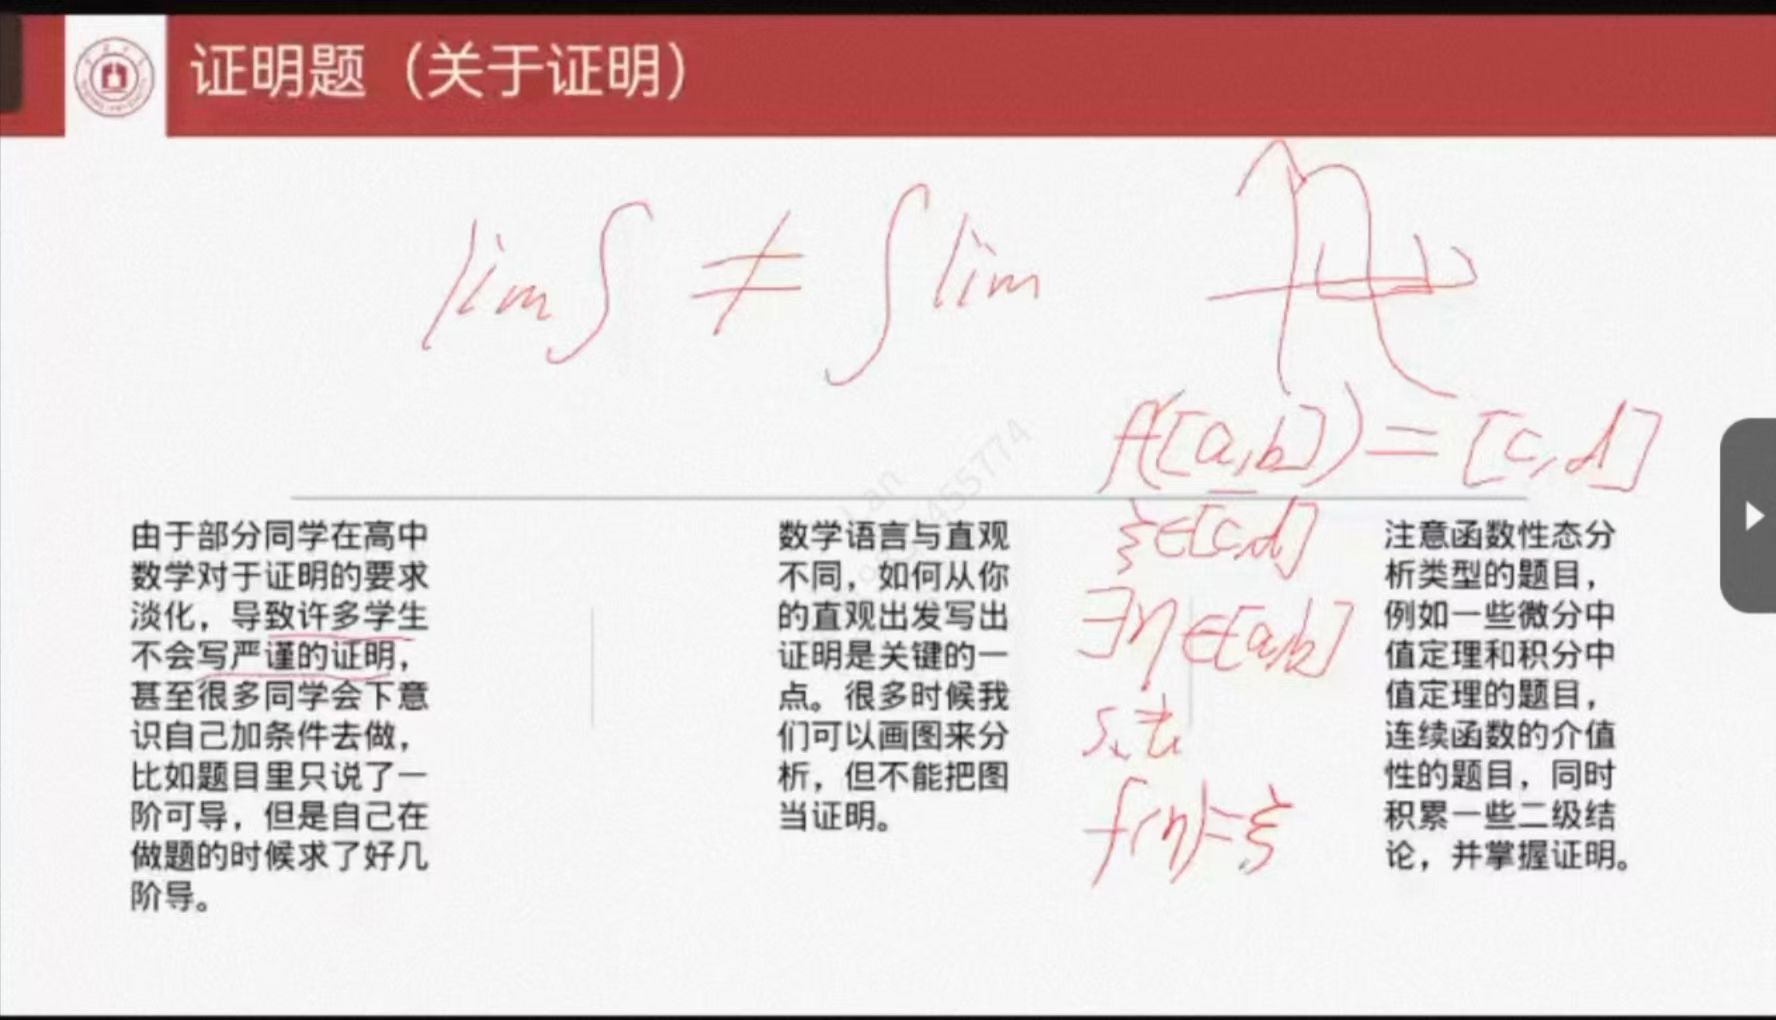 证明题（关于证明）
lim∫ ≠ ∫lim
f([a,b])=[c,d]
由于部分同学在高中
数学对于证明的要求
淡化，导致许多学生
不会写严谨的证明，
甚至很多同学会下意
识自己加条件去做，
比如题目里只说了一
阶可导，但是自己在
做题的时候求了好几
阶导。
数学语言与直观
不同，如何从你
的直观出发写出
证明是关键的一
点。很多时候我
们可以画图来分
析，但不能把图
当证明。
ξ∈[c,d]
∃η∈[a,b]
s.t.
f(η)=ξ
注意函数性态分
析类型的题目，
例如一些微分中
值定理和积分中
值定理的题目，
连续函数的介值
性的题目，同时
积累一些二级结
论，并掌握证明。